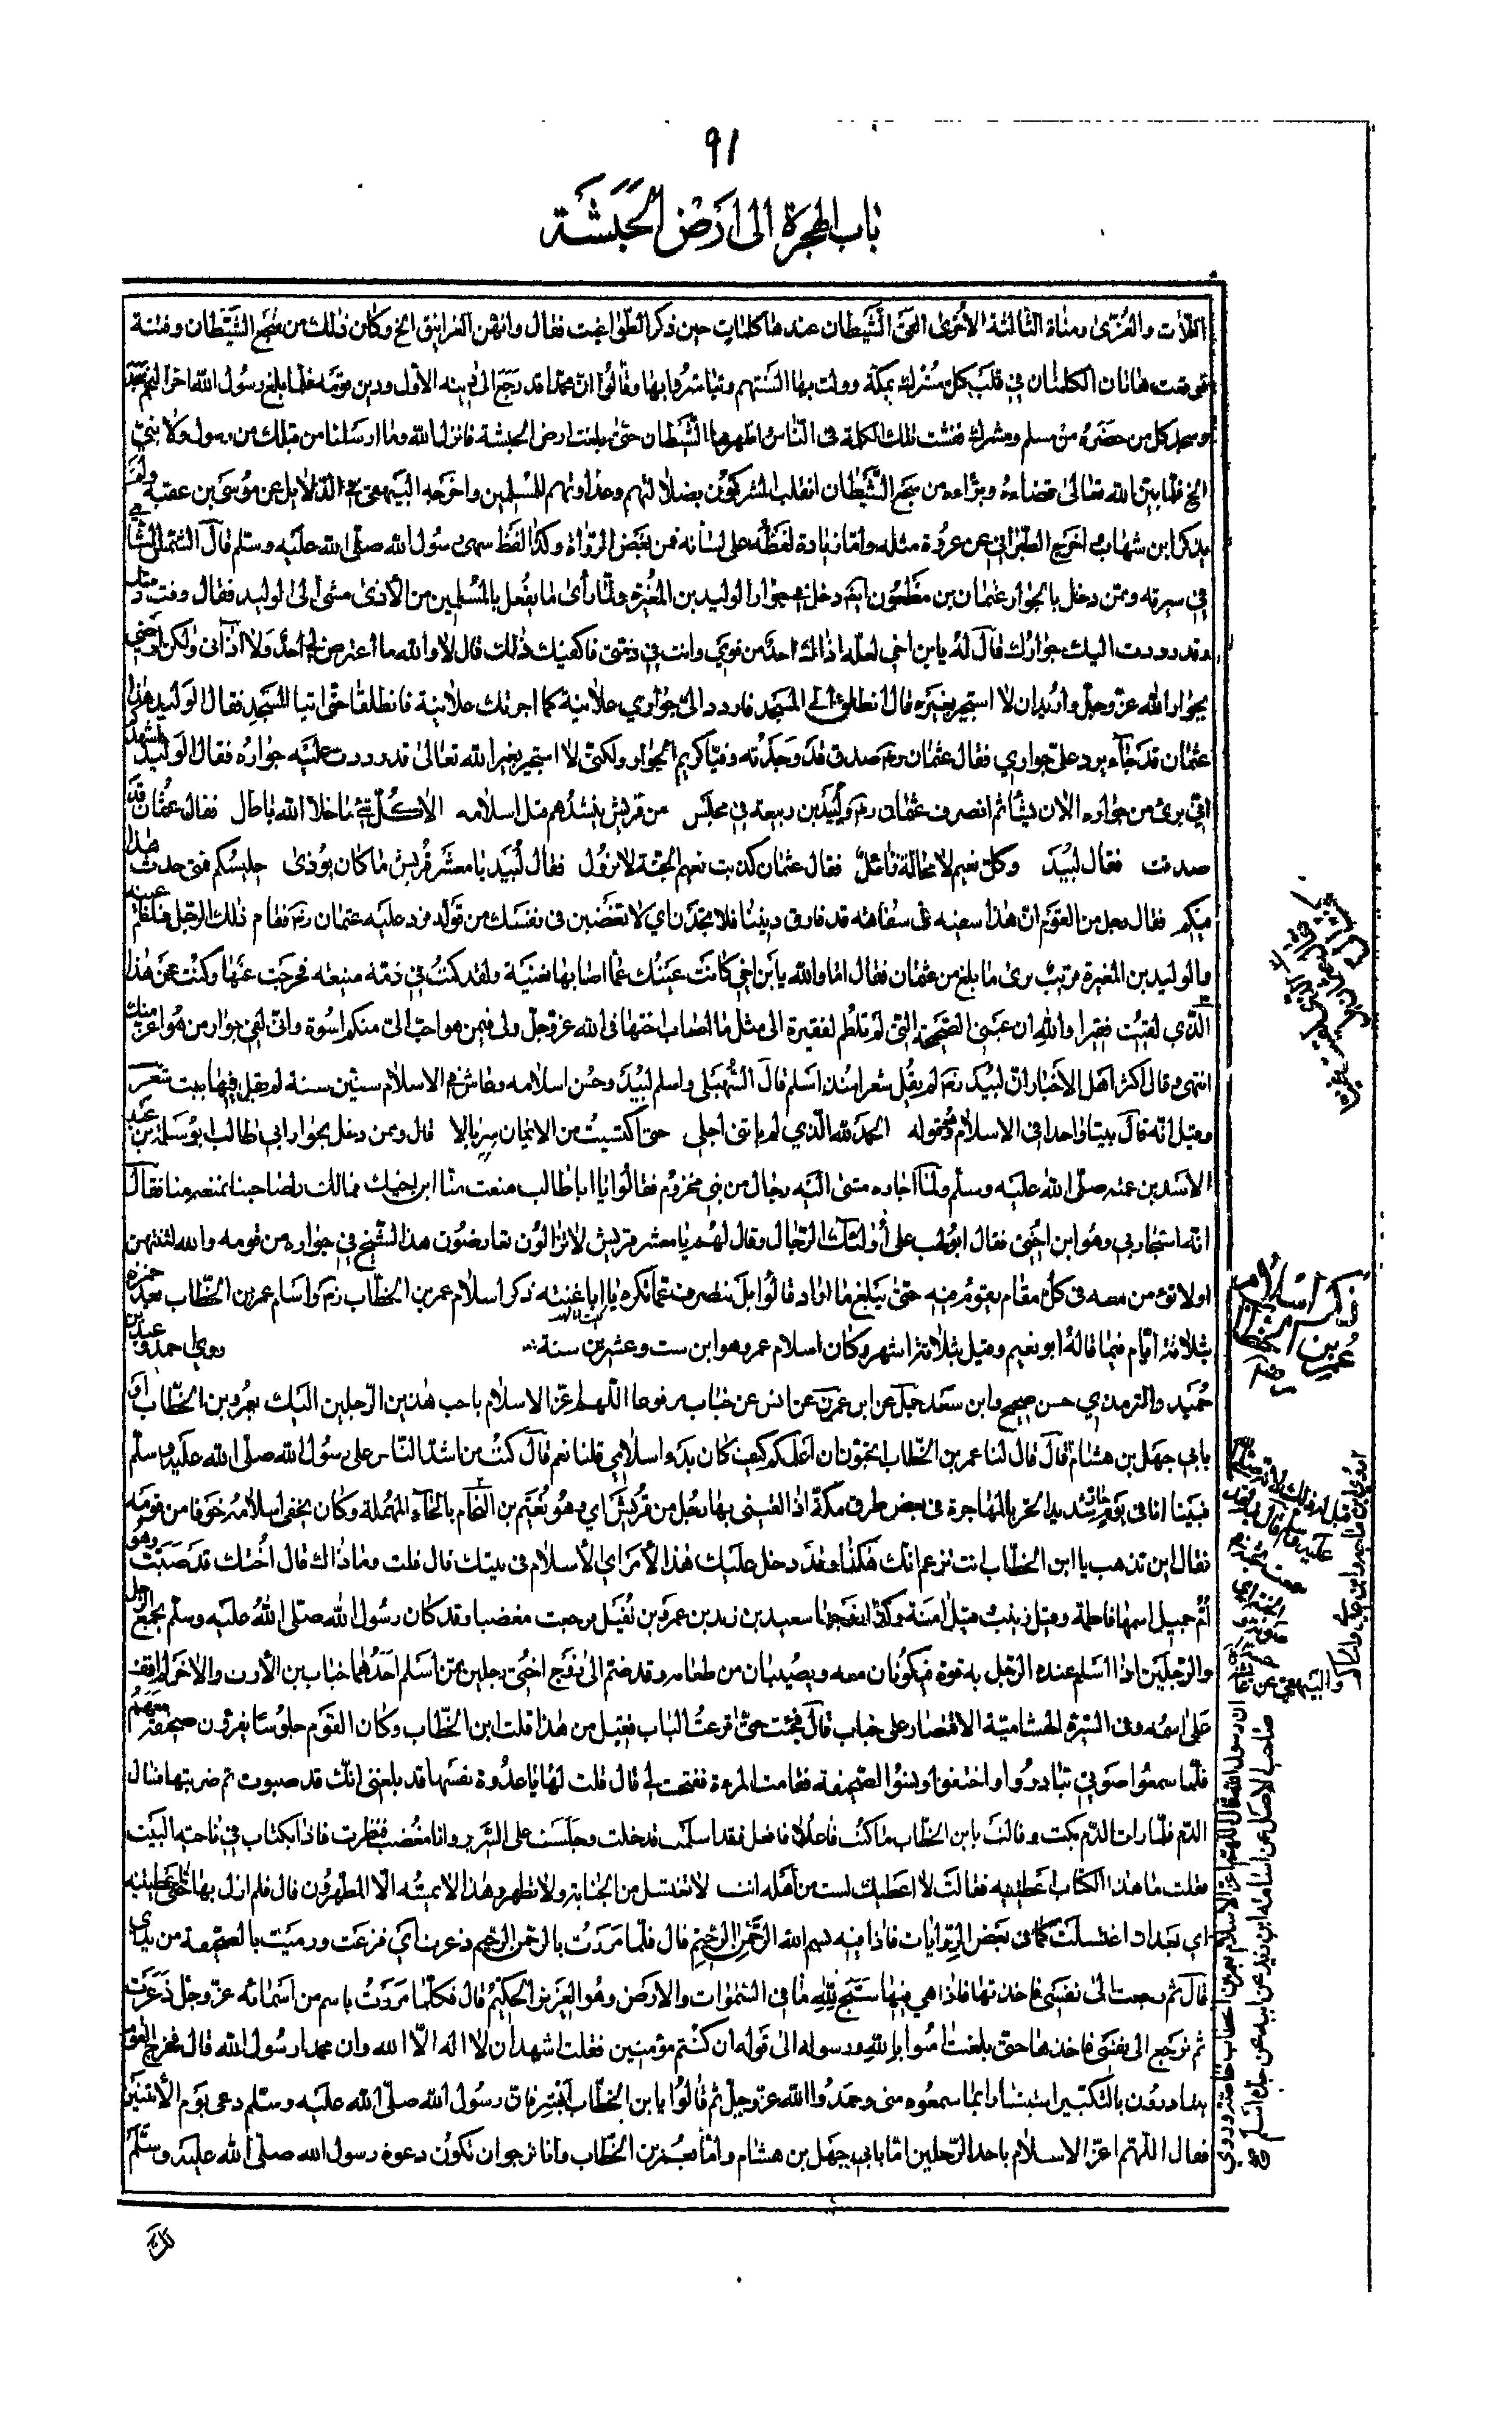 91
باب الهجرة الى ارض الحبشة
اللات والعزى ومناة الثالثة الأخرى القى الشيطان عندها كلمات حين ذكر الطواغيت فقال وانهن الغرانيق الخ وكان ذلك من سجع الشيطان وفتنته
فوقعت هاتان الكلمتان في قلب كل مشرك بمكة وولت بها السنتهم وتباشروا بها وقالوا ان محمدا قد رجع الى دينه الاول ودين قومه فلما بلغ رسول الله اخر النجم سجد
وسجد كل من حضره من مسلم ومشرك ففشت تلك الكلمة في الناس اظهرها الشيطان حتى بلغت ارض الحبشة فانزل الله وما ارسلنا من قبلك من رسول ولا نبي
الخ فلما بين الله تعالى قضاءه وبرأه من سجع الشيطان انقلب المشركون بضلالتهم وعداوتهم للمسلمين واخرجه البيهقي في الدلائل عن موسى بن عقبة ولم
يذكر ابن شهاب واخرج الطبراني عن عروة مثله واما زيادة لفظه على لسانه فمن بعض الرواة وكذا لفظ سهى رسول الله صلى الله عليه وسلم قال الشمس الشامي
في سيرته وممن دخل بالجوار عثمان بن مظعون انه دخل في جوار الوليد بن المغيرة ولما رأى ما يفعل بالمسلمين من الأذى مشى الى الوليد فقال وفت ذمتك
وقد رددت اليك جوارك قال له يابن اخي لعله اذاك احد من قومي وانت في ذمتي فاكفيك ذلك قال لا والله ما اعترض لي احد ولا اذاني ولكن ارضى
بجوار الله عز وجل واريد ان لا استجير بغيره قال انطلق الى المسجد فاردد الي جواري علانية كما اجرتك علانية فانطلقا حتى اتيا المسجد فقال الوليد هذا
عثمان قد جاء يرد علي جواري فقال عثمان رض صدق قد وجدته وفيا كريم الجوار ولكني لا استجير بغير الله تعالى قد رددت عليه جواره فقال الوليد اشهدكم
اني برئ من جواره الا ان يشا ثم انصرف عثمان رض ولبيد بن ربيعة في مجلس من قريش ينشدهم قبل اسلامه الا كل شئ ما خلا الله باطل فقال عثمان قد
صدقت فقال لبيد وكل نعيم لا محالة زائل فقال عثمان كذبت نعيم الجنة لا يزول فقال لبيد يا معشر قريش ما كان يوذى جليسكم فمتى حدث هذا
فيكم فقال رجل من القوم ان هذا سفيه في سفاهته قد فارق ديننا فلا تجدن اي لا تغضبن في نفسك من قوله فرد عليه عثمان رض فقام ذلك الرجل فلطم عينه
والوليد بن المغيرة قريب يرى ما بلغ من عثمان فقال اما والله يابن اخي كانت عينك عما اصابها غنية ولقد كنت في ذمة منيعة فخرجت عنها وكنت عن هذا
الذي لقيت فقيرا والله ان عيني الصحيحة التي لم تلطم لفقيرة الى مثل ما اصاب اختها في الله عز وجل ولي فيمن هو احب الي منكم اسوة واني لفي جوار من هو اعز منك
انتهى وقال اكثر اهل الاخبار ان لبيد رض لم يقل شعرا منذ اسلم قال السهيلي واسلم لبيد وحسن اسلامه وعاش في الاسلام ستين سنة لم يقل فيها بيت شعر
وقيل انه قال بيتا واحدا في الاسلام وهو قوله الحمد لله الذي لم ياتني اجلي حتى اكتسيت من الايمان سربالا قال وممن دخل بجوار ابي طالب ابو سلمة بن عبد
الاسد بن عمته صلى الله عليه وسلم ولما اجاره مشى اليه رجال من بني مخزوم فقالوا يا ابا طالب منعت منا ابن اخيك فمالك ولصاحبنا تمنعه منا فقال
انه استجار بي وهو ابن اختي فقال ابو لهب على أولئك الرجال وقال لهم يا معشر قريش لا تزالون تعارضون هذا الشيخ في جواره من قومه والله لتنتهن
او لاقومن معه في كل مقام يقوم فيه حتى يبلغ ما اراد قالوا بل ننصرف عما تكره يا ابا عتبة ذكر اسلام عمر بن الخطاب رض واسلم عمر بن الخطاب بعد حمزة
بثلاثة ايام فيما قاله ابو نعيم وقيل بثلاثة اشهر وكان اسلام عمر وهو ابن ست وعشرين سنة روى احمد وعبد بن
حميد والترمذي حسن صحيح وابن سعد عن ابن عمر عن انس عن خباب مرفوعا اللهم اعز الاسلام باحب هذين الرجلين اليك بعمر بن الخطاب او
بابي جهل بن هشام قال قال لنا عمر بن الخطاب اتحبون ان اعلمكم كيف كان بدء اسلامي قلنا نعم قال كنت من اشد الناس على رسول الله صلى الله عليه وسلم
فبينا انا في يوم حار شديد الحر بالهاجرة في بعض طرق مكة اذ لقيني بها رجل من قريش اي وهو نعيم بن النحام بالحاء المهملة وكان يخفي اسلامه خوفا من قومه
فقال اين تذهب يا ابن الخطاب انت تزعم انك هكذا وقد دخل عليك هذا الأمر اي الأسلام في بيتك قال قلت وما ذاك قال أختك قد صبت وهو
أم جميل اسمها فاطمة وقيل زينب وقيل امنة وكذا زوجها سعيد بن زيد بن عمرو بن نفيل فرجعت مغضبا وقد كان رسول الله صلى الله عليه وسلم يجمع الرجل
والرجلين اذا اسلم عند الرجل به قوة فيكونان معه ويصيبان من طعامه وقد ضم الى زوج اختي رجلين ممن اسلم احدهما خباب بن الأرت والاخر لم اقف
على اسمه وفي السيرة الهشامية الاقتصار على خباب قال فجئت حتى قرعت الباب فقيل من هذا قلت ابن الخطاب وكان القوم جلوسا يقرؤن صحيفة معهم
فلما سمعوا صوتي تبادروا واختفوا ونسوا الصحيفة فقامت المرءة ففتحت لي قال قلت لها يا عدوة نفسها قد بلغني انك قد صبوت ثم ضربتها فسال
الدم فلما رات الدم بكت وقالت يابن الخطاب ما كنت فاعلا فافعل فقد اسلمت فدخلت وجلست على السرير وانا مغضب فنظرت فاذا بكتاب في ناحية البيت
فقلت ما هذا الكتاب اعطينيه فقالت لا اعطيك لست من اهله انت لا تغتسل من الجنابة ولا تطهر وهذا لا يمسه الا المطهرون قال فلم ازل بها حتى اعطتنيه
اي بعد ان اغتسلت كما في بعض الروايات فاذا فيه بسم الله الرحمن الرحيم قال فلما مررت بالرحمن الرحيم ذعرت اي فزعت ورميت بالصحيفة من يدي
قال ثم رجعت الى نفسي فاخذتها فاذا هي فيها سبح لله ما في السموات والارض وهو العزيز الحكيم قال فكلما مررت باسم من اسمائه عز وجل ذعرت
ثم ترجع الى نفسي فاخذها حتى بلغت امنوا بالله ورسوله الى قوله ان كنتم مؤمنين فقلت اشهد ان لا اله الا الله وان محمدا رسول الله قال فخرج القوم
يتبادرون بالتكبير استبشارا بما سمعوه مني وحمدوا الله عز وجل ثم قالوا يابن الخطاب ابشر فان رسول الله صلى الله عليه وسلم دعى يوم الأثنين
فقال اللهم اعز الاسلام باحد الرجلين اما بابي جهل بن هشام واما بعمر بن الخطاب وانا نرجو ان تكون دعوة رسول الله صلى الله عليه وسلم
ذكر اسلام
عمر بن الخطاب
رض
ان رسول الله قال اللهم اعز الاسلام بعمر بن الخطاب خاصة وروى
صاحب الاصل عن اسامة ابن زيد عن ابيه عن جده اسلم
والبيهقي عن
لك